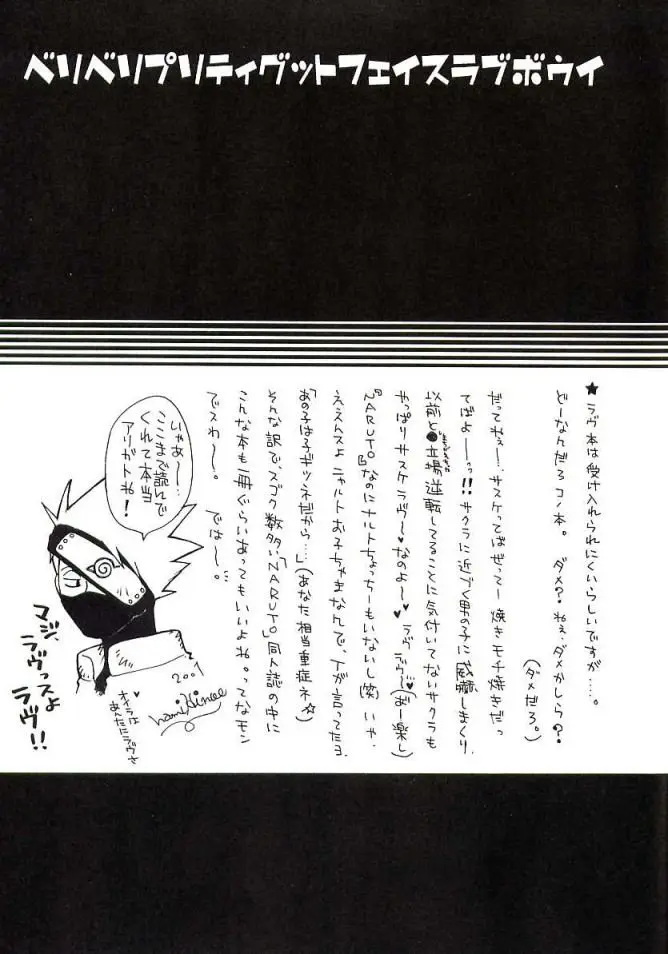 ベリベリプリティグットフェイスラブボウイ
★ ラヴ本は受け入れられにくいらしいですが……。
どーなんだろコノ本。 ダメ? ねぇ、ダメかしら?
(ダメだろ。)
だってねぇー…、サスケってばぜってー焼きモチ焼きだっ
てばよーっ!! サクラに近づく男の子に威嚇しまくり、
以前と●立場逆転してることに気付いてないサクラも
やっぱりサスケラヴ〜♥なのよ〜♥ ラヴラヴ〜♥(おー楽し)
『NARUTO』なのにナルトちょっちーもいないし(笑)いや、
ええんスよニャルトお子ちゃまなんで、下が言ってたヨ、
「あの子は子ギツネだから…」(あなた相当重症ネ☆)
そんな訳で、スゴク数多い「NARUTO」同人誌の中に
こんな本も一冊ぐらいあってもいいよね。ってなモン
でスわ〜。 では〜。
いやあ〜…
ここまで読んで
くれて本当
アリガトね!
マジ、
ラヴっスよ
ラヴ!!
2001
オイラは
あんたにラヴさ♥